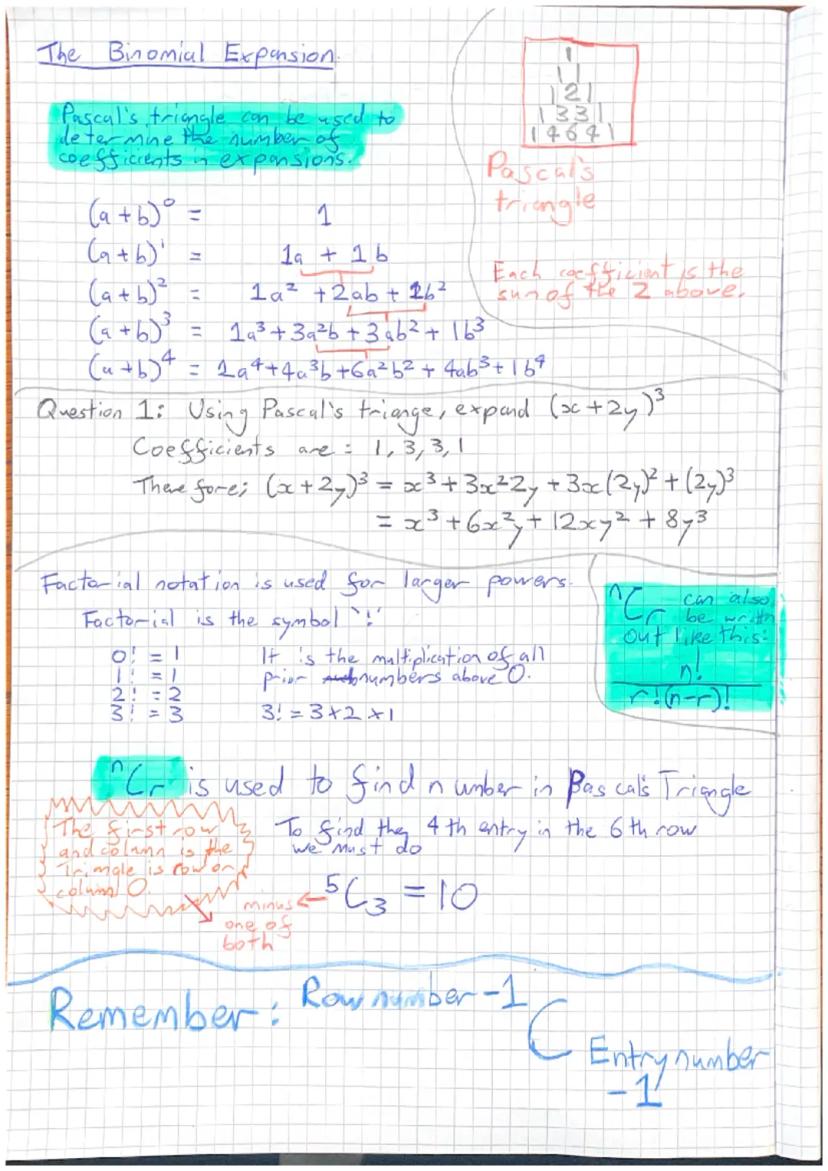 The Binomial Expansion.
Pascal's triangle can be used to
determine the number of
coefficients in expansions.
1
1 1
1 2 1
1 3 3 1
1 4 6 4 1
Pascal's
triangle
Each coefficient is the
sum of the 2 above.
(a+b)⁰ = 1
(a+b)¹ = 1a + 1b
(a+b)² = 1a² + 2ab + 1b²
(a+b)³ = 1a³ + 3a²b + 3ab² + 1b³
(a+b)⁴ = 1a⁴ + 4a³b + 6a²b² + 4ab³ + 1b⁴
Question 1: Using Pascal's triange, expand (x+2y)³
Coefficients are: 1, 3, 3, 1
Therefore; (x+2y)³ = x³ + 3x²2y + 3x(2y)² + (2y)³
= x³ + 6x²y + 12xy² + 8y³
Factorial notation is used for larger powers.
Factorial is the symbol '!'
0! = 1
1! = 1
2! = 2
3! = 3
It is the multiplication of all
prior numbers above 0.
3! = 3×2×1
ⁿCr can also
be writtn
out like this:
n!
r!(n-r)!
ⁿCr is used to find number in Pascals Triangle
The first row
and column is the
Triangle is row or
column 0.
To find the 4th entry in the 6th row
we must do
⁵C₃ = 10
minus
one of
both
Remember: Row number -1
C
Entry number
-1